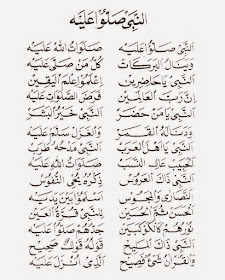 النبى صلوا عليه
النبى صلوا عليه صلوات الله عليه
وينال البركات كل من صلى عليه
النبى يا حاضرين اعلموا علم اليقين
ان رب العالمين فرض الصلوات عليه
النبى يا من حضر النبى خير البشر
ودنا له القمر والغزل سلم عليه
النبى العرب النبى مدحه طرب
الحبيب عالى النسب صلوات الله عليه
النبى ذاك العروس ذكره يحي النفوس
النصارى والمجوس اسلموا بين يديه
الحسن ثم الحسين للنبى قرة العين
نورهم كالكوكبين جدهم صلوا عليه
النبى ذاك المليح قوله قول صحيح
والقران شئ فصيح الذى انزل عليه